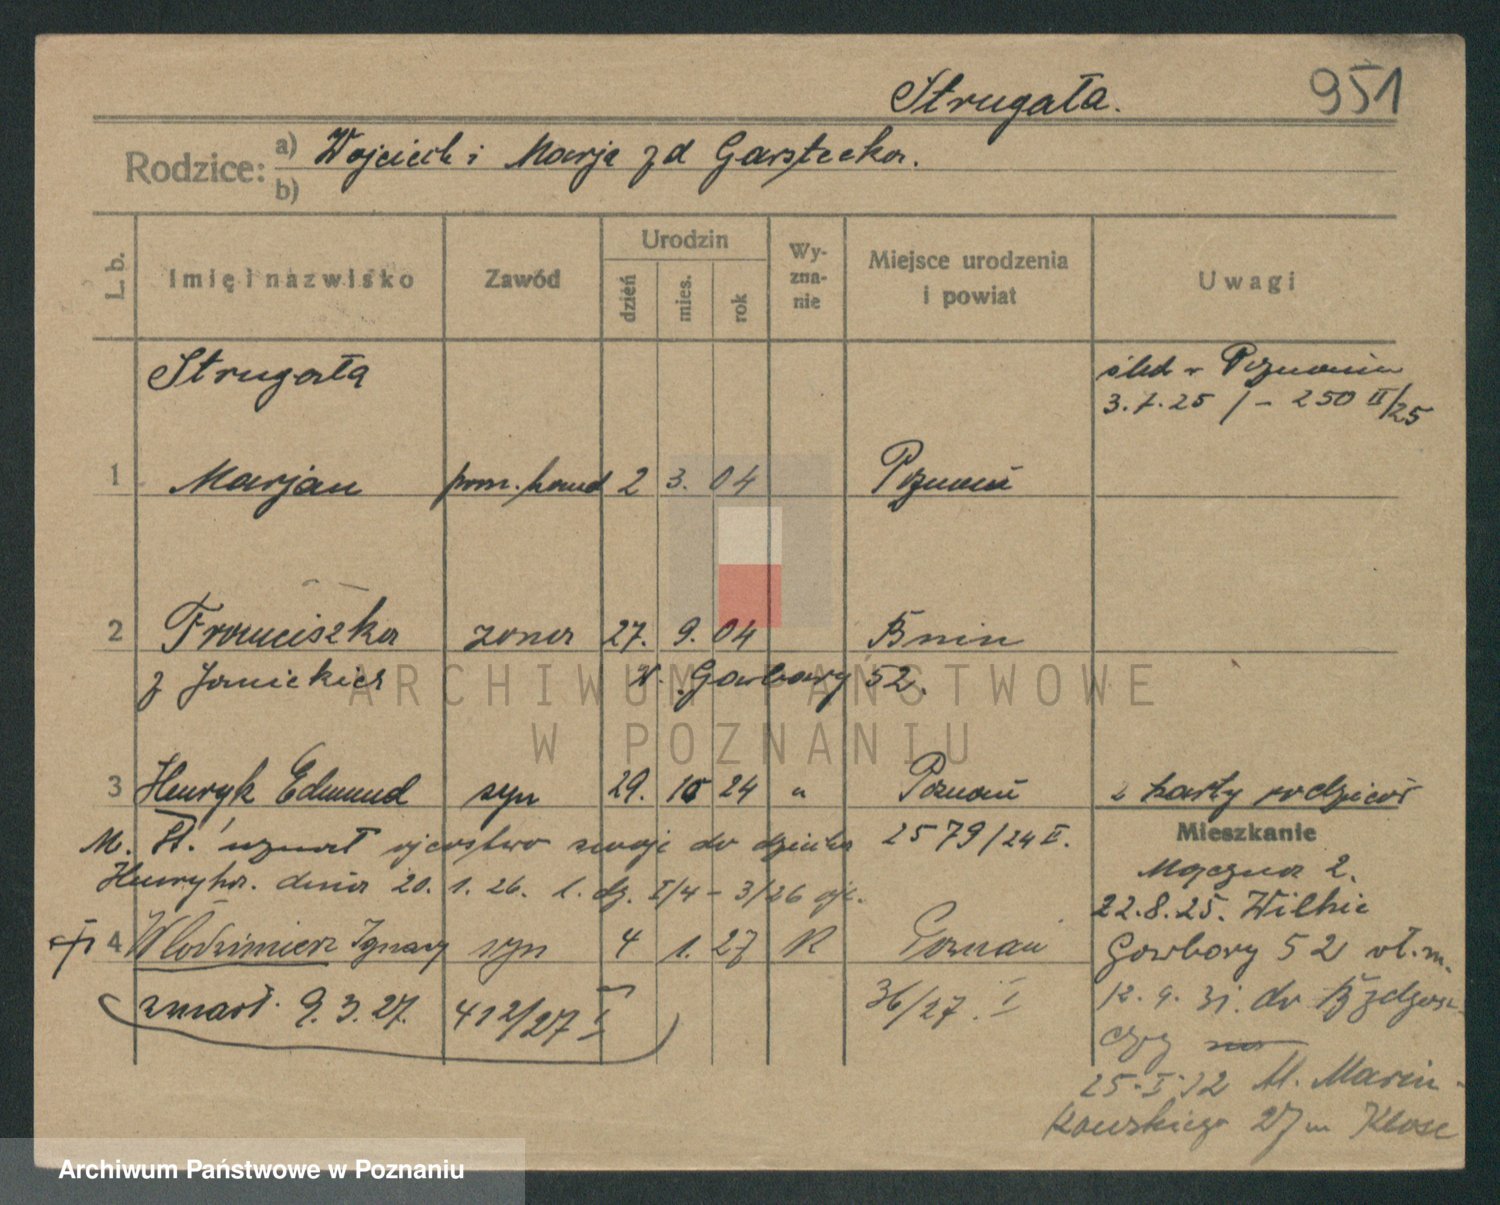 951
Strugała.
Rodzice: a) Wojciech i Marja zd Garstecka.
b)
L. b. Imię i nazwisko Zawód Urodzin dzień mies. rok Wyzna-nie Miejsce urodzenia i powiat Uwagi
Strugała
ślub w Poznaniu
3.1.25 / - 250 II/25
1 Marjan pom. hand 2 3. 04 Poznań
2 Franciszka żona 27. 9. 04 Bnin
z Janickich W. Garbary 52.
3 Henryk Edmund syn 29. 10 24 " Poznań z karty rodziców
M. St. uznał ojcostwo swoje do dziecka 2579/24 II.
Henryka. dnia 20. 1. 26. l. dz. I/4 - 3/26
Mieszkanie
Mączna 2.
22.8.25. Wielkie
Garbary 52 wł. m.
4 Włodzimierz Ignacy syn 4 1. 27 R Poznań
zmarł. 9.3.27. 412/27 I
36/27. I
12.9.31. do Bydgosz-
czy
25.I.32 M. Marcin-
kowskiego 27 m Klose
ARCHIWUM PAŃSTWOWE
W POZNANIU
Archiwum Państwowe w Poznaniu